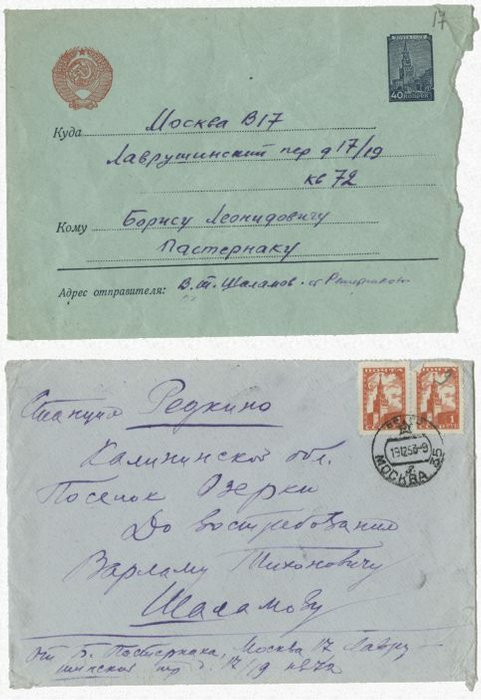 17
ПОЧТА СССР
40 КОПЕЕК
Куда Москва В17
Лаврушинский пер д 17/19
кв 72
Кому Борису Леонидовичу
Пастернаку
Адрес отправителя: В.Т. Шаламов
ПОЧТА
1
3
МОСКВА
Станция Редкино
Калининской обл.
Поселок Озерки
До востребования
Варламу Тихоновичу
Шаламову
от Б. Пастернака, Москва 17 Лавру-
шинский пер д. 17/19 кв 72